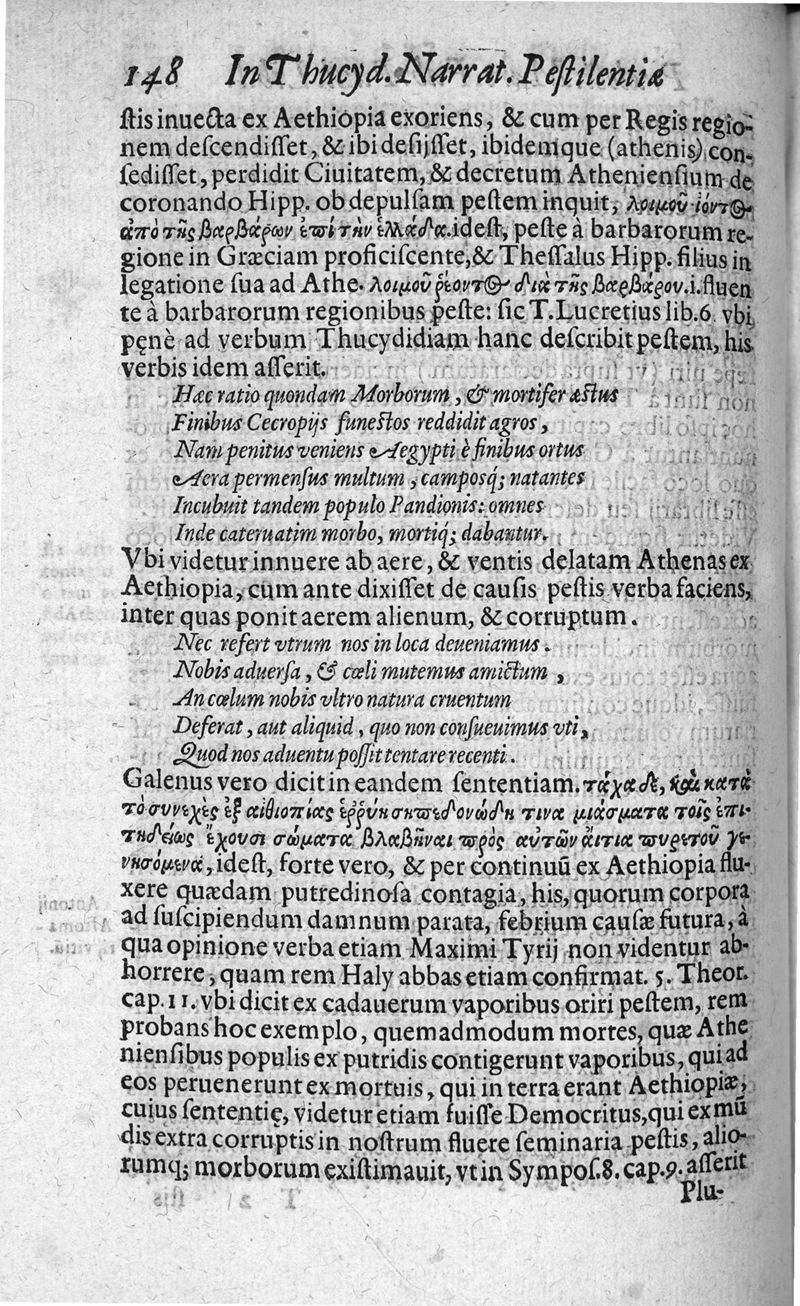 148 In Thucyd. Narrat. Pestilentiæ
ſtis inuecta ex Aethiopia exoriens, & cum per Regis regio-
nem deſcendiſſet, & ibi deſijſſet, ibidemque (athenis) con-
ſediſſet, perdidit Ciuitatem, & decretum Athenienſium de
coronando Hipp. ob depulſam peſtem inquit, λοιμοῦ ἰόντος
ἀπὸ τῆς βαρβάρων ἐπὶ τὴν ἑλλάδα. ideſt, peſte à barbarorum re-
gione in Græciam proficiſcente, & Theſſalus Hipp. filius in
legatione ſua ad Athe. λοιμοῦ ῥέοντος διὰ τῆς βαρβάρου. i. fluen
te à barbarorum regionibus peſte: ſic T. Lucretius lib. 6. vbi
pęnè ad verbum Thucydidiam hanc deſcribit peſtem, his
verbis idem aſſerit.
Hæc ratio quondam Morborum, & mortifer æstus
Finibus Cecropijs funestos reddidit agros,
Nam penitus veniens Aegypti è finibus ortus
Aera permenſus multum, camposq́; natantes
Incubuit tandem populo Pandionis: omnes
Inde cateruatim morbo, mortiq́; dabantur.
Vbi videtur innuere ab aere, & ventis delatam Athenas ex
Aethiopia, cum ante dixiſſet de cauſis peſtis verba faciens,
inter quas ponit aerem alienum, & corruptum.
Nec refert vtrum nos in loca deueniamus.
Nobis aduerſa, & cœli mutemus amictum,
An cœlum nobis vltro natura cruentum
Deferat, aut aliquid, quo non conſueuimus vti,
Quod nos aduentu poſſit tentare recenti.
Galenus vero dicit in eandem ſententiam. τάχα δὲ, καὶ κατὰ
τὸ συνεχὲς ἐξ αἰθιοπίας ἐῤῥύη σηπεδονώδη τινα μιάσματα τοῖς ἐπι-
τηδείως ἔχουσι σώματα βλαβῆναι πρὸς αὐτῶν ἄιτια πυρετοῦ γε-
νησόμενα, ideſt, forte vero, & per continuū ex Aethiopia flu-
xere quædam putredinoſa contagia, his, quorum corpora
ad ſuſcipiendum damnum parata, febrium cauſæ futura, à
qua opinione verba etiam Maximi Tyrij non videntur ab-
horrere, quam rem Haly abbas etiam confirmat. 5. Theor.
cap. 11. vbi dicit ex cadauerum vaporibus oriri peſtem, rem
probans hoc exemplo, quemadmodum mortes, quæ Athe
nienſibus populis ex putridis contigerunt vaporibus, qui ad
eos peruenerunt ex mortuis, qui in terra erant Aethiopiæ,
cuius ſententię, videtur etiam fuiſſe Democritus, qui ex mū
dis extra corruptis in noſtrum fluere ſeminaria peſtis, alio-
rumq; morborum exiſtimauit, vt in Sympoſ. 8. cap. 9. aſſerit
Plu-